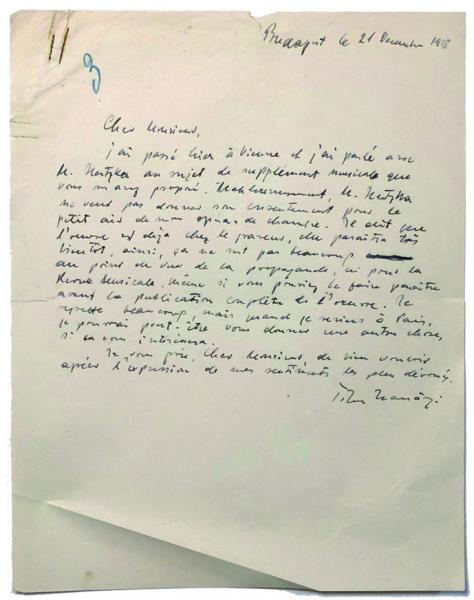 Budapest le 21 Decembre 1928
3
Cher Monsieur,
j'ai passé hier à Vienne et j'ai parlé avec
M. Hertzka au sujet de supplément musicale que
vous m'avez proposé. Malheureusement, M. Hertzka
ne veut pas donner son consentement pour le
petit air de mon opéra de chambre. Il dit que
l'oeuvre est déja chez le graveur, elle paraîtra très
bientôt, ainsi, ça ne sert pas beaucoup
au point de vue de la propagande, ni pour la
Revue Musicale, même si vous pouviez le faire paraître
avant la publication complète de l'oeuvre. Je
regrette beaucoup, mais quand je reviens à Paris,
je pourrai peut-être vous donner une autre chose,
si ça vous intéressera.
Je vous prie, Cher Monsieur, de bien vouloir
agréer l'expression de mes sentiments les plus dévoués.
Tibor Harsányi